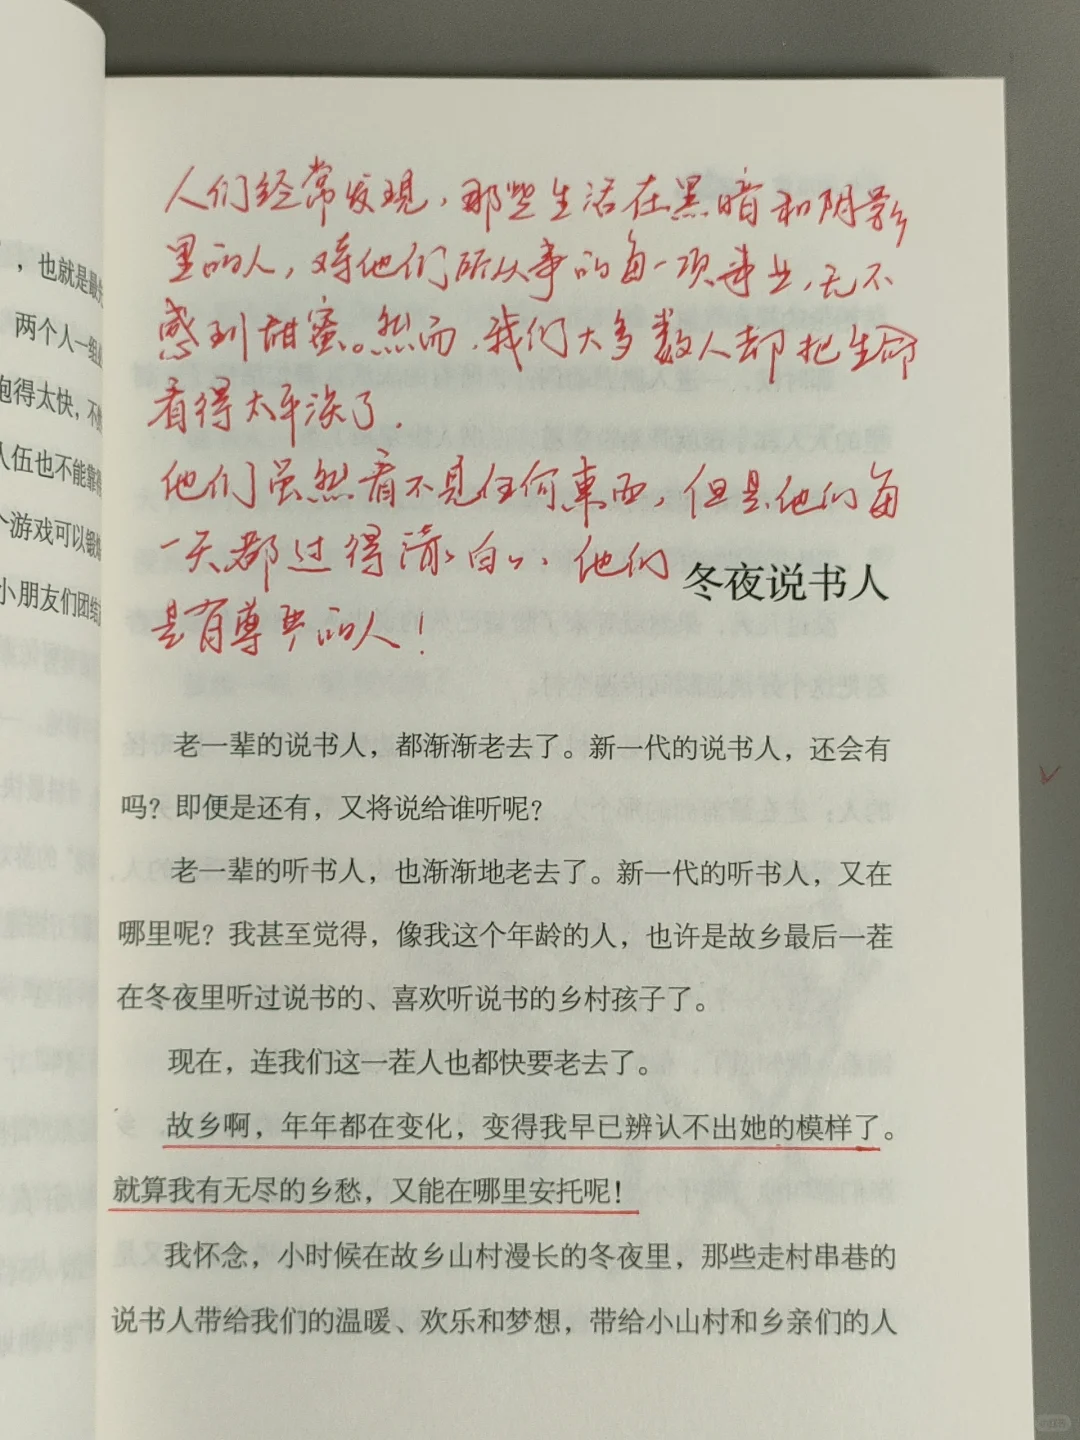 ，也就是最
两个人一组
跑得太快，不
人伍也不能靠
个游戏可以锻
小朋友们团结
人们经常发现，那些生活在黑暗和阴影
里的人，对他们所从事的每一项事业，无不
感到甜蜜。然而，我们大多数人却把生命
看得太平淡了.
他们虽然看不见任何東西，但是他们每
一天都过得清清白白、他们
是有尊严的人！
冬夜说书人
老一辈的说书人，都渐渐老去了。新一代的说书人，还会有
吗？即便是还有，又将说给谁听呢？
老一辈的听书人，也渐渐地老去了。新一代的听书人，又在
哪里呢？我甚至觉得，像我这个年龄的人，也许是故乡最后一茬
在冬夜里听过说书的、喜欢听说书的乡村孩子了。
现在，连我们这一茬人也都快要老去了。
故乡啊，年年都在变化，变得我早已辨认不出她的模样了。
就算我有无尽的乡愁，又能在哪里安托呢！
我怀念，小时候在故乡山村漫长的冬夜里，那些走村串巷的
说书人带给我们的温暖、欢乐和梦想，带给小山村和乡亲们的人